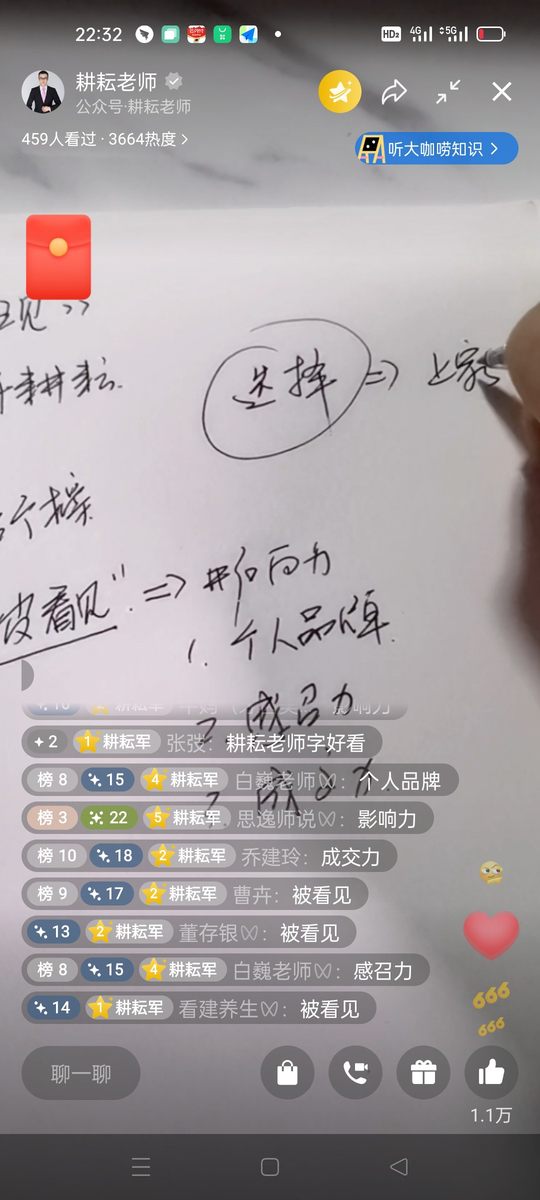 22:32
HD2 4G 5G
耕耘老师
公众号·耕耘老师
459人看过 · 3664热度 >
听大咖唠知识 >
见 >>
耕耘.
选择 => 上
个样
被看见" => 影响力
1. 个人品牌.
2 感召力
影响力
+2 1 耕耘军 张弢: 耕耘老师字好看
榜 8 15 4 耕耘军 白巍老师: 个人品牌
榜 3 22 5 耕耘军 思逸师说: 影响力
榜 10 18 2 耕耘军 乔建玲: 成交力
榜 9 17 2 耕耘军 曹卉: 被看见
13 2 耕耘军 董存银: 被看见
榜 8 15 4 耕耘军 白巍老师: 感召力
14 1 耕耘军 看建养生: 被看见
666
666
聊一聊
1.1万